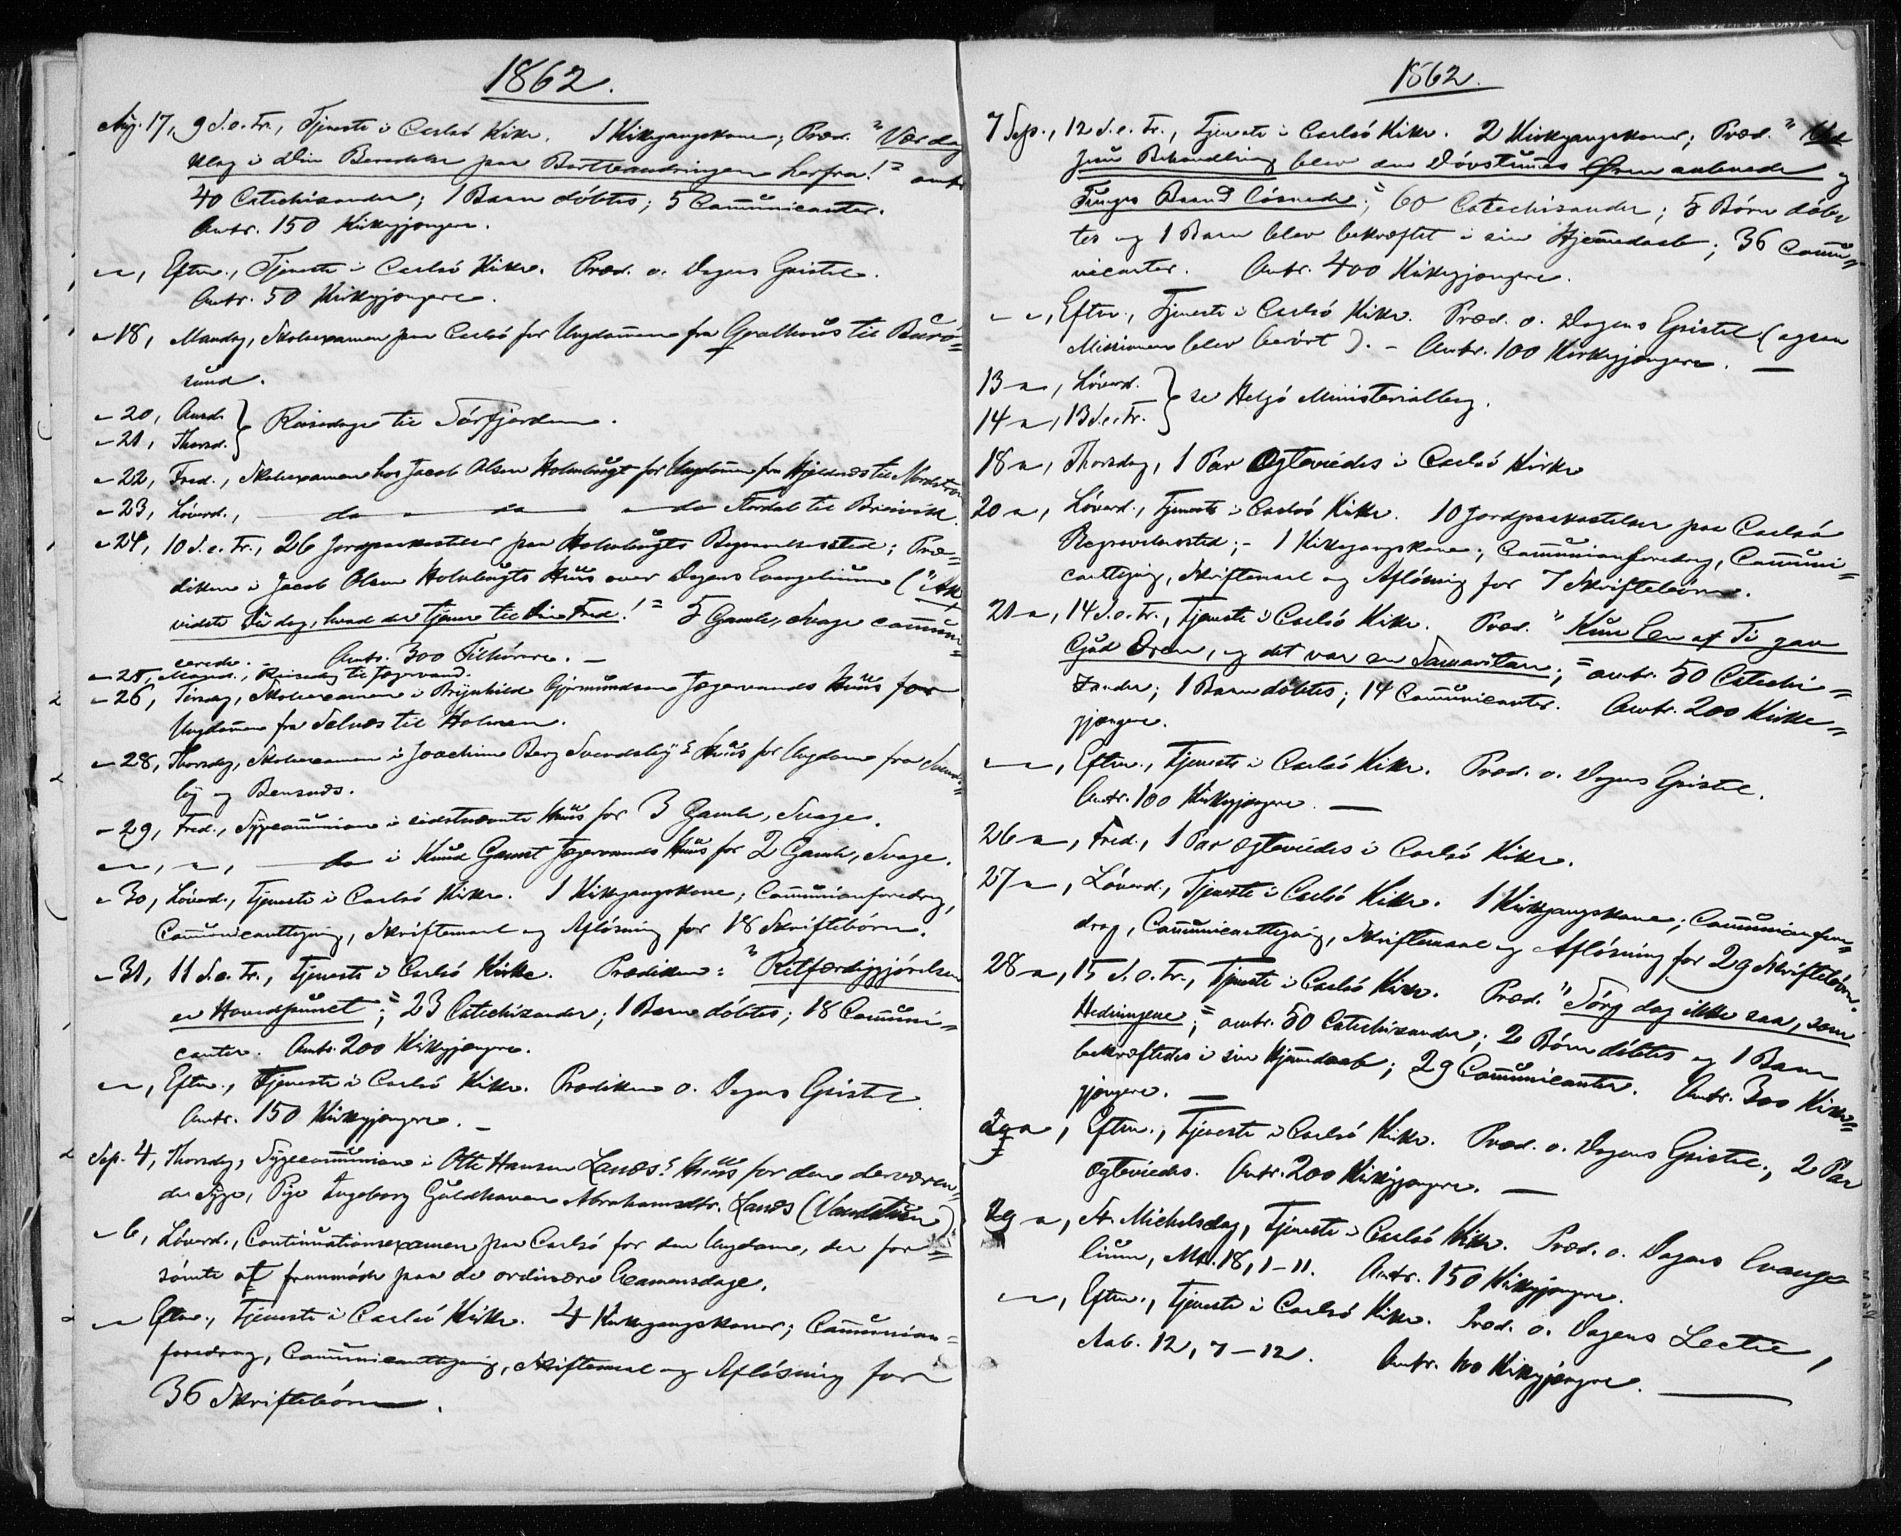 1862.
Aug. 17, 9 S. e. Tr., Tjeneste i Carlsö Kirke. 1 Kirkegangskone; Præd. "Vær dog
klog i Din Beredelse paa Bortvandringen herfra!" omtr.
40 Catechisander; 1 Barn döbtes; 5 Communicanter.
Omtr. 150 Kirkegjængere.
" ", Efterm., Tjeneste i Carlsö Kirke. Præd. o. Dagens Epistel.
Omtr. 50 Kirkegjængere.
" 18, Mandag, Skoleexamen paa Carlsö for Ungdommen fra til Burö-
sund.
" 20, Onsd.
" 21, Thorsd. } Reisedage til Sörfjorden.
" 22, Fred., Skoleexamen hos Jacob Olsen Holmbugt for Ungdommen fra til
" 23, Löverd., do do do Stordal til Breivik.
" 24, 10 S. e. Tr., 26 Jordpaakastelser paa Holmbugts Begravelsessted; Præ-
diken i Jacob Olsen Holmbugts Huus over Dagens Evangelium ("Ak
vidste Du dog, hvad der tjener til Din Fred!" 5 Gamle, Svage commun-
cerede. Omtr. 300 Tilhörere.
" 25, Mand., Reisedag til Jægervand.
" 26, Tirsdag, Skoleexamen i Brynhild Gjermundsen Jægervands Huus for
Ungdommen fra Selnæs til Holmen.
" 28, Thorsdag, Skoleexamen i Joachim Berg Svendsbys Huus for Ungdom fra Svends-
by og Bensnæs.
" 29, Fred., Sygecommunion i sidstnævnte Huus for 3 Gamle, Svage.
" ", ", do i Knud Gamst Jægervands Huus for 2 Gamle, Svage.
" 30, Löverd., Tjeneste i Carlsö Kirke. 1 Kirkegangskone; Communionforedrag,
Communicanttegning, Skriftemaal og Aflösning for 18 Skriftebörn.
" 31, 11 S. e. Tr., Tjeneste i Carlsö Kirke. Prædiken: "Retfærdiggjörelsen
er Hovedpunct"; 23 Catechisander; 1 Barn döbtes; 18 Communi-
canter. Omtr. 200 Kirkegjængere.
" ", Efterm., Tjeneste i Carlsö Kirke. Prædiken o. Dagens Epistel.
Omtr. 150 Kirkegjængere.
Sep. 4, Thorsdag, Sygecommunion i Otte Hansen Lanæs's Huus for den derværen-
de Syge, Pige Ingeborg Guldhavea Abrahamsdtr. Lanæs
" 6, Löverd., Continuationsexamen paa Carlsö for den Ungdom, der for-
sömte at fremmöde paa de ordinære Examensdage.
" Efterm., Tjeneste i Carlsö Kirke. 4 Kirkegangskoner; Communion-
foredrag, Communicanttegning, Skriftemaal og Aflösning for
36 Skriftebörn.
1862.
7 Sep., 12 S. e. Tr., Tjeneste i Carlsö Kirke. 2 Kirkegangskoner; Præd. "Ved
Behandling blev den Dövstummes Øren aabnede og
Tunges Baand lösnede"; 60 Catechisander; 5 Börn döb-
tes og 1 Barn blev bekræftet i sin Hjemmedaab; 36 Commu-
nicanter. Omtr. 400 Kirkegjængere.
" ", Efterm., Tjeneste i Carlsö Kirke. Præd. o. Dagens Epistel (ogsaa
Missionen blev berört). - Omtr. 100 Kirkegjængere.
13 ", Löverd.
14 ", 13 S. e. Tr. } se Helgö Ministerialbog.
18 ", Thorsdag, 1 Par Ægteviedes i Carlsö Kirke
20 ", Löverd., Tjeneste i Carlsö Kirke. 10 Jordpaakastelser paa Carlsö
Begravelsessted; - 1 Kirkegangskone; Communionforedrag, Communi-
canttegning, Skriftemaal og Aflösning for 7 Skriftebörn.
21 ", 14 S. e. Tr., Tjeneste i Carlsö Kirke. Præd. "Kun Een af Ti gav
Gud Æren, og det var en Samaritan;" omtr. 50 Catechi-
sander; 1 Barn döbtes; 14 Communicanter. Omtr. 200 Kirke-
gjængere.
" ", Efterm., Tjeneste i Carlsö Kirke. Præd. o. Dagens Epistel.
Omtr. 100 Kirkegjængere.
26 ", Fred., 1 Par ægteviedes i Carlsö Kirke.
27 ", Löverd., Tjeneste i Carlsö Kirke. 1 Kirkegangskone; Communionfore-
drag, Communicanttegning, Skriftemaal og Aflösning for 29 Skriftebörn.
28 ", 15 S. e. Tr., Tjeneste i Carlsö Kirke. Præd. "Sörg dog ikke saa, som
Hedningene;" omtr. 50 Catechisander; 2 Börn döbtes og 1 Barn
bekræftedes i sin Hjemmedaab; 29 Communicanter. Omtr. 300 Kirke-
gjængere.
" , Efterm., Tjeneste i Carlsö Kirke. Præd. o. Dagens Epistel; 2 Par
Ægteviedes. Omtr. 200 Kirkegjængere.
29 ", St. Michelsdag, Tjeneste i Carlsö Kirke. Præd. o. Dagens Evange-
lium, Mt. 18, 1-11. Omtr. 150 Kirkegjængere.
" ", Efterm., Tjeneste i Carlsö Kirke. Præd. o. Dagens Lectie,
Aab. 12, 7-12. Omtr. 100 Kirkegjængere.